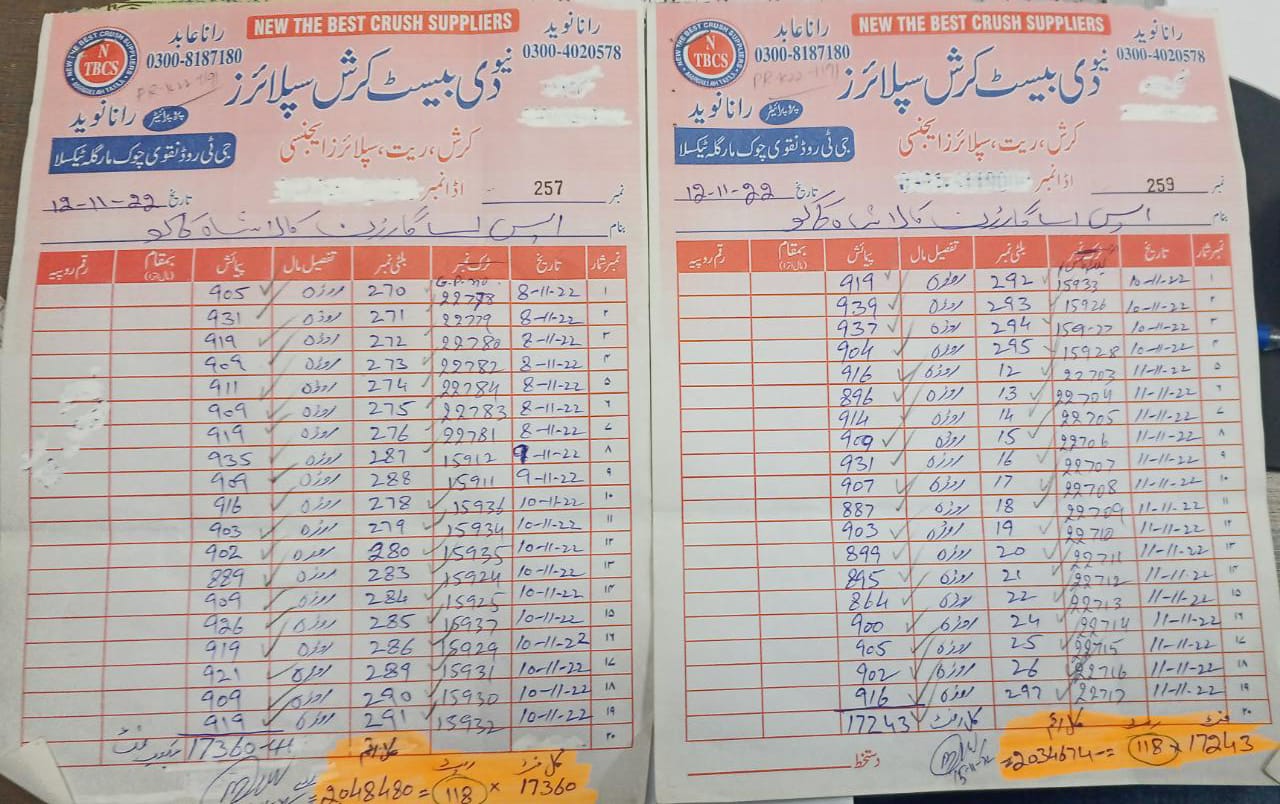 NEW THE BEST CRUSH SUPPLIERS
رانا عابد
0300-8187180
رانا نوید
0300-4020578
N
TBCS
PR-K22-7191
نیو دی بیسٹ کرش سپلائرز
پروپرائیٹر رانا نوید
کرش، ریت، سپلائرز ایجنسی
جی ٹی روڈ نقوی چوک مارگلہ ٹیکسلا
نمبر 257 اڈا نمبر
تاریخ 12-11-22
بنام ایس اے گارڈن کالا شاہ کاکو
نمبر شمار تاریخ ٹرک نمبر بلٹی نمبر تفصیل مال پیمائش بمقام رقم روپیہ
G.P. no
۱ 8-11-22 22778 270 روڑہ 905
۲ 8-11-22 22779 271 روڑہ 931
۳ 8-11-22 22780 272 روڑہ 919
۴ 8-11-22 22782 273 روڑہ 909
۵ 8-11-22 22784 274 روڑہ 911
۶ 8-11-22 22783 275 روڑہ 909
۷ 8-11-22 22781 276 روڑہ 919
۸ 9-11-22 15912 287 روڑہ 935
۹ 9-11-22 15911 288 روڑہ 909
۱۰ 10-11-22 15936 278 روڑہ 916
۱۱ 10-11-22 15934 279 روڑہ 903
۱۲ 10-11-22 15935 280 روڑہ 902
۱۳ 10-11-22 15924 283 روڑہ 889
۱۴ 10-11-22 15925 284 روڑہ 909
۱۵ 10-11-22 15937 285 روڑہ 926
۱۶ 10-11-22 15929 286 روڑہ 919
۱۷ 10-11-22 15931 289 روڑہ 921
۱۸ 10-11-22 15930 290 روڑہ 909
۱۹ 10-11-22 15932 291 روڑہ 919
۲۰ 17360 فٹ
کل فٹ ریٹ کل رقم
2048480 = 118 × 17360
NEW THE BEST CRUSH SUPPLIERS
رانا عابد
0300-8187180
رانا نوید
0300-4020578
N
TBCS
PR-K22-7191
نیو دی بیسٹ کرش سپلائرز
پروپرائیٹر رانا نوید
کرش، ریت، سپلائرز ایجنسی
جی ٹی روڈ نقوی چوک مارگلہ ٹیکسلا
نمبر 259 اڈا نمبر
تاریخ 12-11-22
بنام ایس اے گارڈن کالا شاہ کاکو
نمبر شمار تاریخ ٹرک نمبر بلٹی نمبر تفصیل مال پیمائش بمقام رقم روپیہ
۱ 10-11-22 15933 292 روڑہ 919
۲ 10-11-22 15926 293 روڑہ 939
۳ 10-11-22 15927 294 روڑہ 937
۴ 10-11-22 15928 295 روڑہ 904
۵ 11-11-22 22703 12 روڑہ 916
۶ 11-11-22 22704 13 روڑہ 896
۷ 11-11-22 22705 14 روڑہ 914
۸ 11-11-22 22706 15 روڑہ 909
۹ 11-11-22 22707 16 روڑہ 931
۱۰ 11-11-22 22708 17 روڑہ 907
۱۱ 11-11-22 22709 18 روڑہ 887
۱۲ 11-11-22 22710 19 روڑہ 903
۱۳ 11-11-22 22711 20 روڑہ 899
۱۴ 11-11-22 22712 21 روڑہ 895
۱۵ 11-11-22 22713 22 روڑہ 864
۱۶ 11-11-22 22714 24 روڑہ 900
۱۷ 11-11-22 22715 25 روڑہ 905
۱۸ 11-11-22 22716 26 روڑہ 902
۱۹ 11-11-22 22717 297 روڑہ 916
۲۰ کل فٹ 17243
فٹ ریٹ کل رقم
=2034674 = 118 × 17243
15-11-22
دستخط